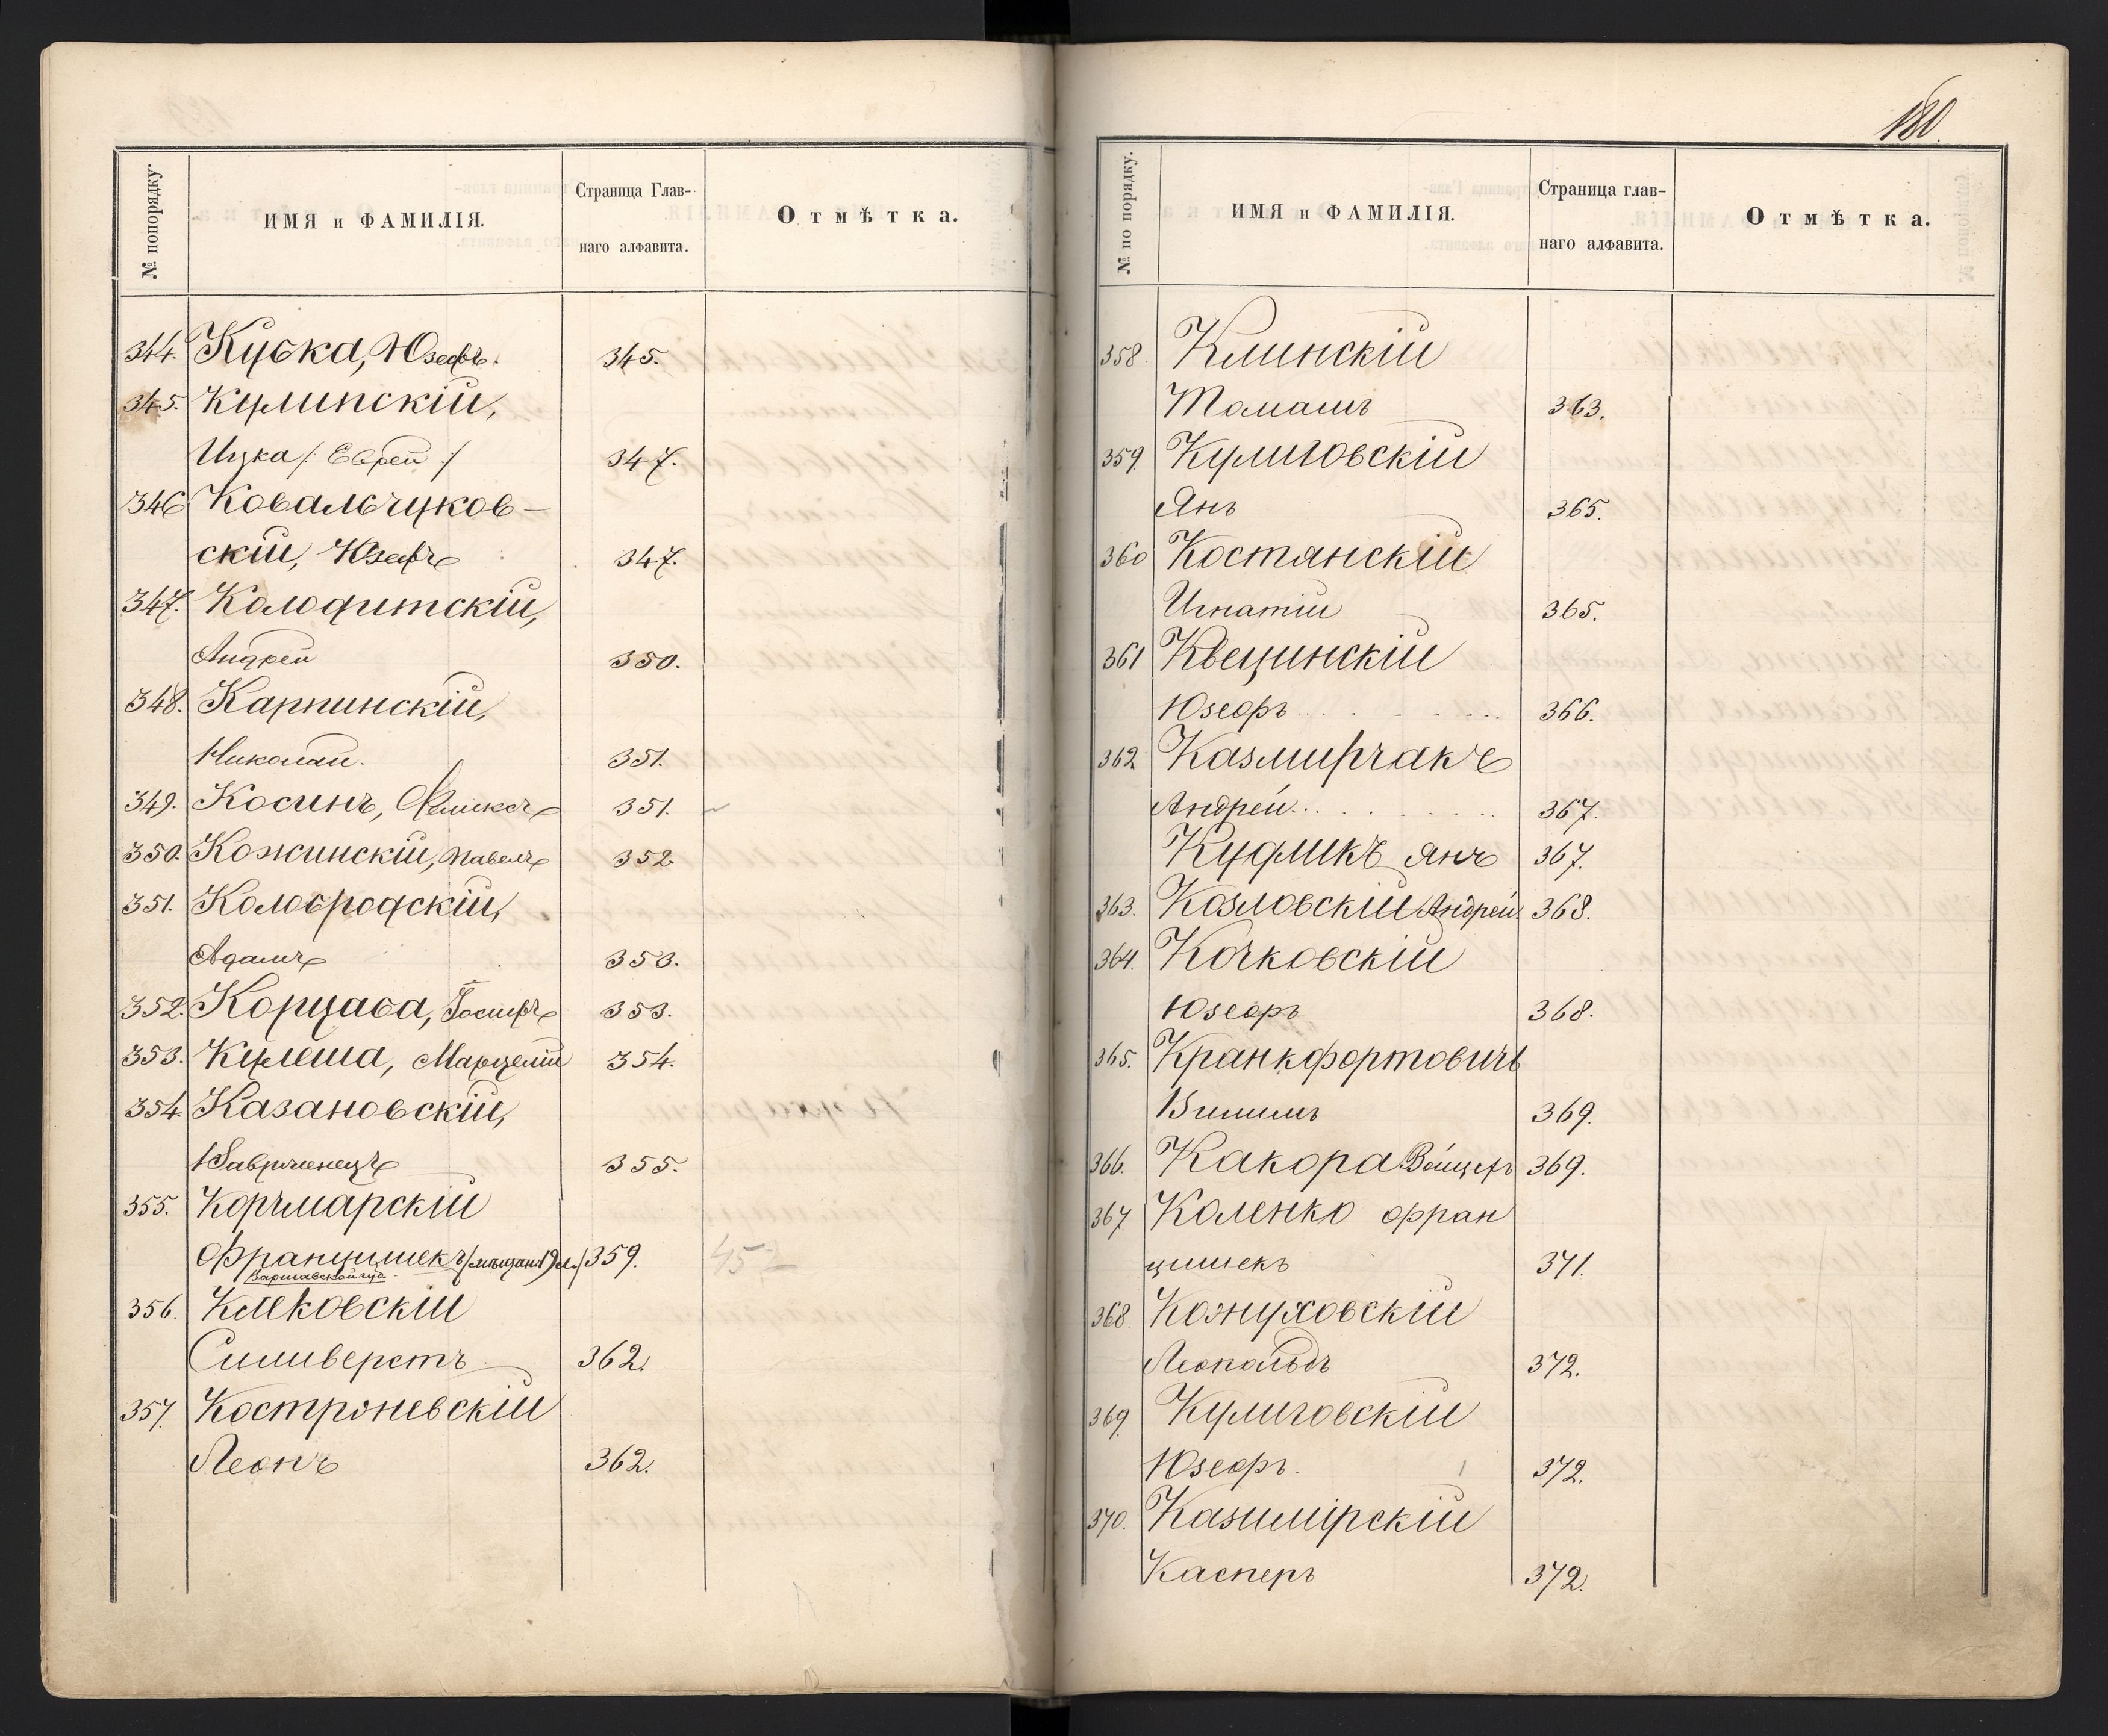 № попорядку.
ИМЯ и ФАМИЛІЯ.
Страница Глав-
наго алфавита.
Отмѣтка.
344. Кубка, Юзефъ. 345.
345. Кулинскій,
Ицка /: Еврей :/ 347.
346 Ковальчуков-
скій, Юзефъ 347.
347. Колодитскій,
Андрей 350.
348. Карпинскій,
Николай. 351.
349. Косинъ, Феликсъ 351.
350. Кожинскій, Павелъ 352.
351. Колобродскій,
Адамъ 353.
352. Корцаба, Іосифъ 353.
353. Кулеша, Марцелій 354.
354. Казановскій,
Вавржинецъ 355.
355. Корчмарскій
Францишекъ /мѣщан. 19 л./ 359. 452
Варшавской губ.
356. Клековскій
Силиверстъ 362.
357. Костроневскій
Леонъ 362.
180.
№ по порядку.
ИМЯ и ФАМИЛІЯ.
Страница глав-
наго алфавита.
Отмѣтка.
358 Клинскій
Томашъ 363.
359. Кулиговскій
Янъ 365.
360 Костянскій
Игнатій 365.
361 Квецинскій
Юзефъ 366.
362 Казмирчакъ
Андрей 367.
Кудликъ Янъ 367.
363. Козловскій Андрей 368.
364. Кочковскій
Юзефъ 368.
365. Кранкфортовичъ
Вилимъ 369.
366. Какора Войцехъ 369.
367 Коленко Фран
цишекъ 371.
368. Кожуховскій
Леопольдъ 372.
369 Кулиговскій
Юзефъ. 372.
370. Казимірскій
Касперъ 372.